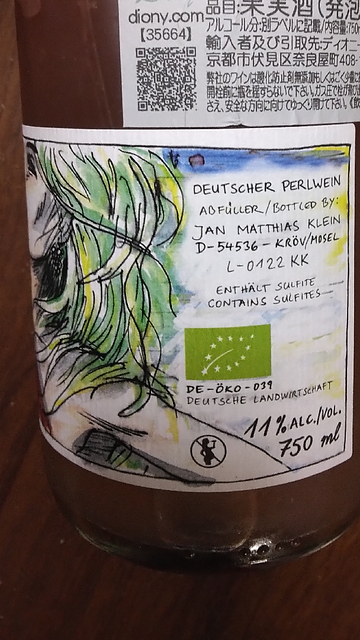 品目:果実酒(発泡
diony.com
アルコール分:別ラベルに記載/内容量:750m
【35664】
輸入者及び引取先:ディオニー
京都市伏見区奈良屋町408-
弊社のワインは酸化防止剤無添加もしくはごく少量に
さえ、安全な方向に向けてゆっくり開けて下さい。
DEUTSCHER PERLWEIN
ABFÜLLER/BOTTLED BY:
JAN MATTHIAS KLEIN
D-54536-KRÖV/MOSEL
L-0122 KK
ENTHÄLT SULFITE
CONTAINS SULFITES
DE-ÖKO-039
DEUTSCHE LANDWIRTSCHAFT
11% ALC./VOL.
750 ml